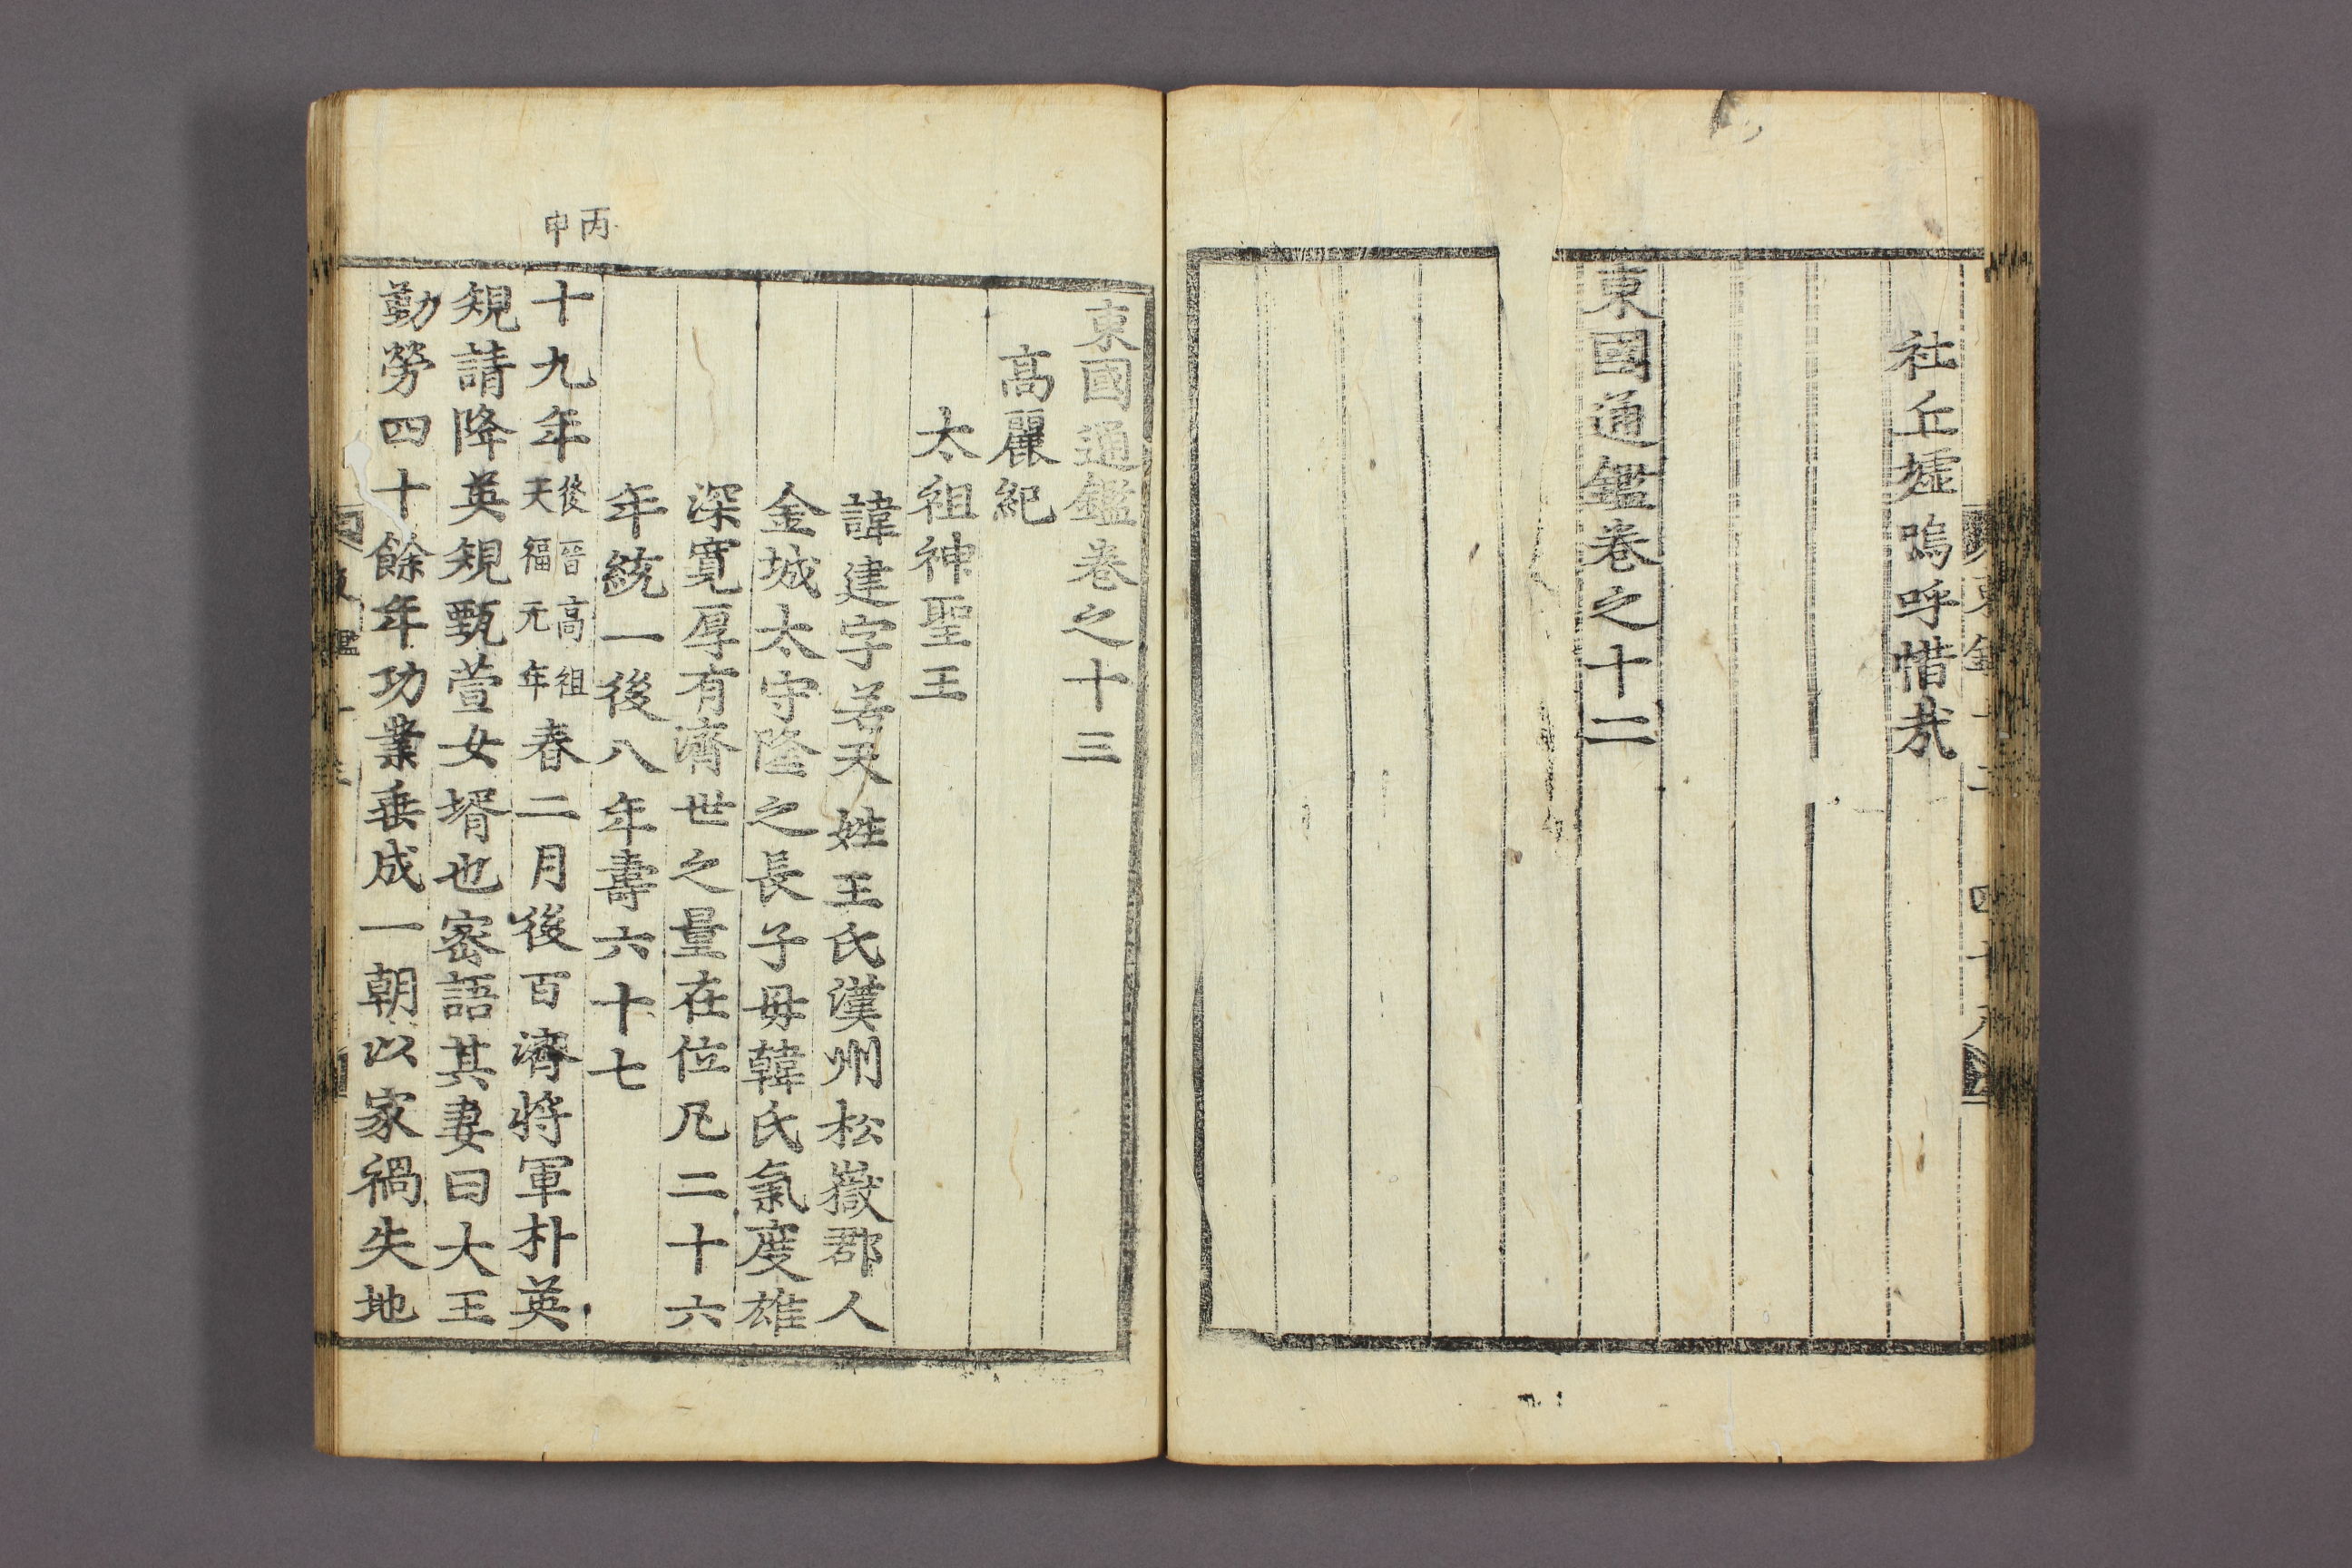 社丘墟嗚呼惜哉
東國通鑑卷之十二
東國通鑑卷之十三
高麗紀
太祖神聖王
諱建字若天姓王氏漢州松嶽郡人
金城太守隆之長子母韓氏氣度雄
深寬厚有濟世之量在位凡二十六
年統一後八年壽六十七
丙申
十九年後晉高祖天福元年春二月後百濟將軍朴英
規請降英規甄萱女壻也密語其妻曰大王
勤勞四十餘年功業垂成一朝以家禍失地